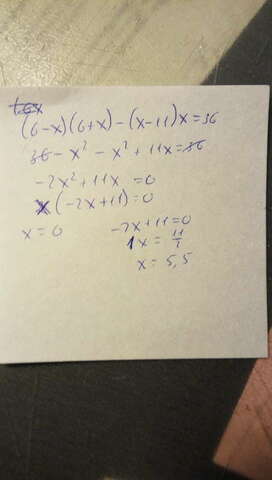 (6-x)(6+x)-(x-11)x=36
36-x²-x²+11x=36
-2x²+11x=0
x(-2x+11)=0
x=0
-2x+11=0
x=
x=5,5